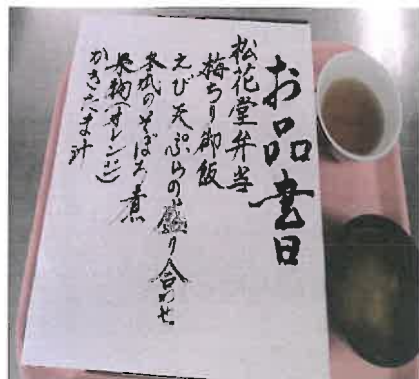 お品書
松花堂弁当
梅ちり御飯
えび天ぷらの盛り合わせ
冬瓜のそぼろ煮
果物(オレンジ)
かきたま汁